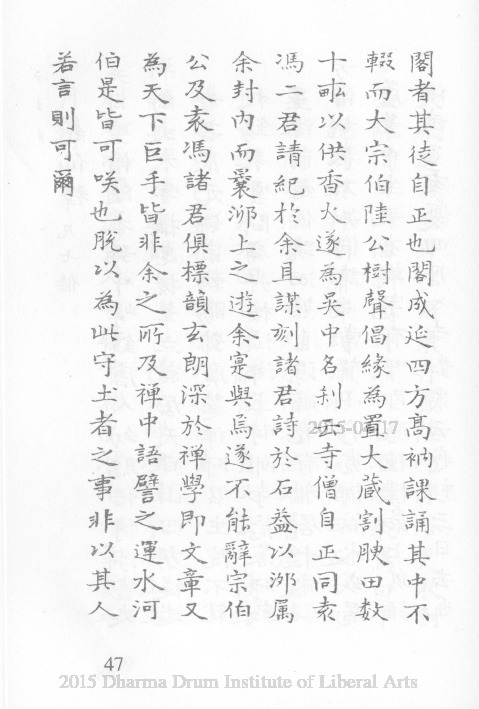 閣者其徒自正也閣成延四方髙衲課誦其中不
輟而大宗伯陸公樹聲倡緣為置大藏割腴田数
十畝以供香火遂為吳中名刹云寺僧自正同袁
馮二君請紀於余且謀刻諸君詩於石葢以泖属
余封内而曩泖上之遊余寔與焉遂不能辭宗伯
公及袁馮諸君俱標韻玄朗深於禅學即文章又
為天下巨手皆非余之所及禅中語譬之運水河
伯是皆可咲也脫以為此守土者之事非以其人
若言則可爾
2015-08-17
47
2015 Dharma Drum Institute of Liberal Arts